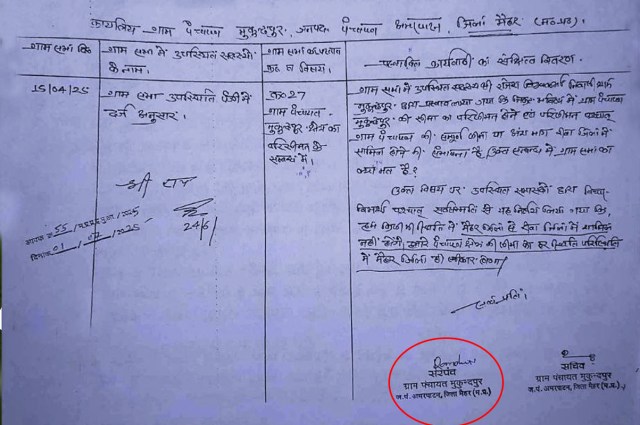 कार्यालय- ग्राम पंचायत मुकुन्दपुर, जनपद पंचायत अमरपाटन, जिला मैहर (म०प्र०)।
ग्राम सभा दि०
ग्राम सभा में उपस्थित सदस्यों के नाम।
ग्राम सभा का प्रस्ताव क्र० व विषय।
प्रस्तावित कार्यवाही का संक्षिप्त विवरण.
15/04/25
ग्राम सभा उपस्थिति पंजी में
दर्ज अनुसार।
क्र० 27
ग्राम पंचायत-
मुकुन्दपुर क्षेत्र का
परिसीमन के
सम्बन्ध में।
ग्राम सभा में उपस्थित सदस्य श्री
मुकुन्दपुर द्वारा प्रस्ताव रखा गया कि में ग्राम पंचायत
मुकुन्दपुर की सीमा का परिसीमन होने एवं परिसीमन पश्चात्
ग्राम पंचायत की सम्पूर्ण सीमा या अंश भाग रीवा जिला में
शामिल होने की संभावना है, उक्त सम्बन्ध में ग्राम सभा का
क्या मत है?
उक्त विषय पर उपस्थित सदस्यों द्वारा विचार
विमर्श पश्चात् सर्वसम्मति से यह निर्णय लिया गया कि,
हम किसी भी स्थिति में मैहर जिला से रीवा जिला में शामिल
नहीं होंगे, हमारे पंचायत क्षेत्र की सीमा का हर स्थिति परिस्थिति
में मैहर जिला ही स्वीकार होगा।
24/6/
क्रमांक 55/2025
दिनांक 01/07/2025
सरपंच
ग्राम पंचायत मुकुन्दपुर
ज.पं. अमरपाटन, जिला मैहर (म.प्र.)
सचिव
ग्राम पंचायत मुकुन्दपुर
ज.पं. अमरपाटन, जिला मैहर (म.प्र.)